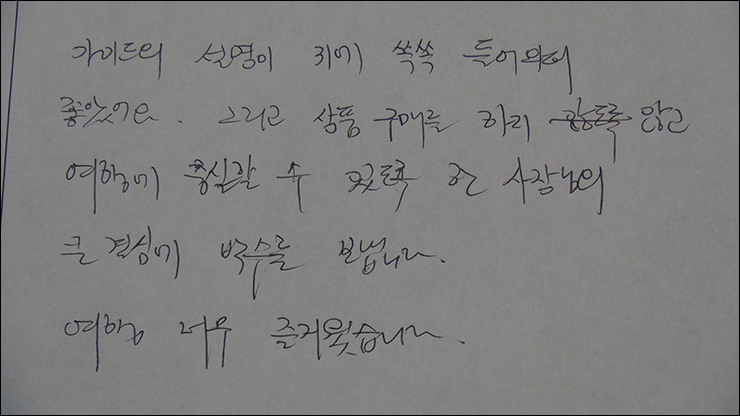 가이드의 설명이 귀에 쏙쏙 들어와서
좋았어요. 그리고 상품 구매를 하지 않고
여행에 충실할 수 있도록 한 사장님의
큰 결심에 박수를 보냅니다.
여행 너무 즐거웠습니다.